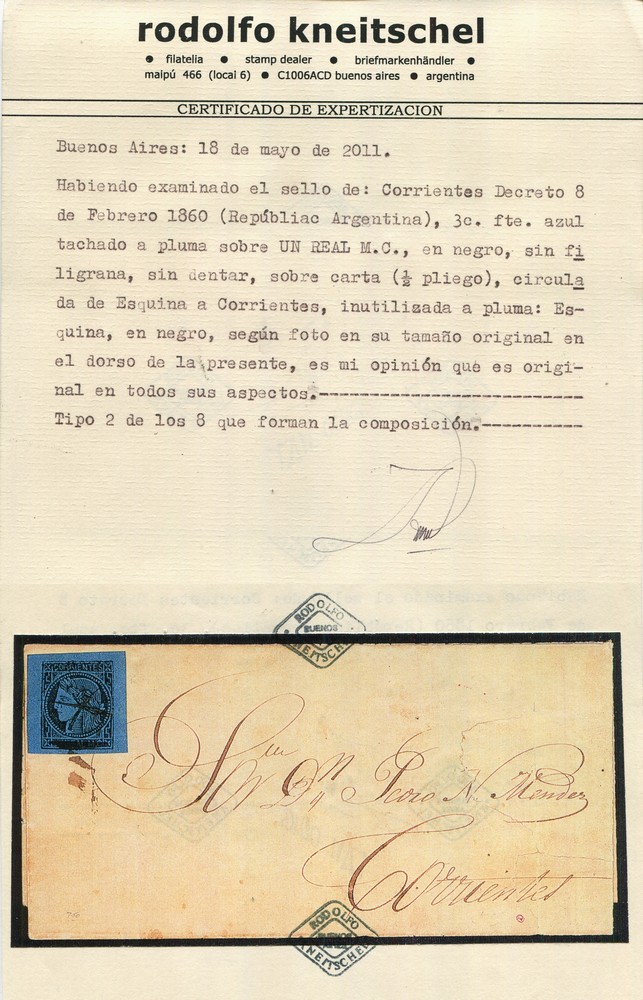 rodolfo kneitschel
● filatelia ● stamp dealer ● briefmarkenhändler ●
maipú 466 (local 6) ● C1006ACD buenos aires ● argentina
CERTIFICADO DE EXPERTIZACION
Buenos Aires: 18 de mayo de 2011.
Habiendo examinado el sello de: Corrientes Decreto 8
de Febrero 1860 (Repúbliac Argentina), 3c. fte. azul
tachado a pluma sobre UN REAL M.C., en negro, sin fi
ligrana, sin dentar, sobre carta (½ pliego), circula
da de Esquina a Corrientes, inutilizada a pluma: Es-
quina, en negro, según foto en su tamaño original en
el dorso de la presente, es mi opinión que es origi-
nal en todos sus aspectos.--------------------------
Tipo 2 de los 8 que forman la composición.----------
RODOLFO
BUENOS
KNEITSCHEL
CORRIENTES
Sr Dn Pedro N. Mendez
Corrientes
RODOLFO
BUENOS
KNEITSCHEL